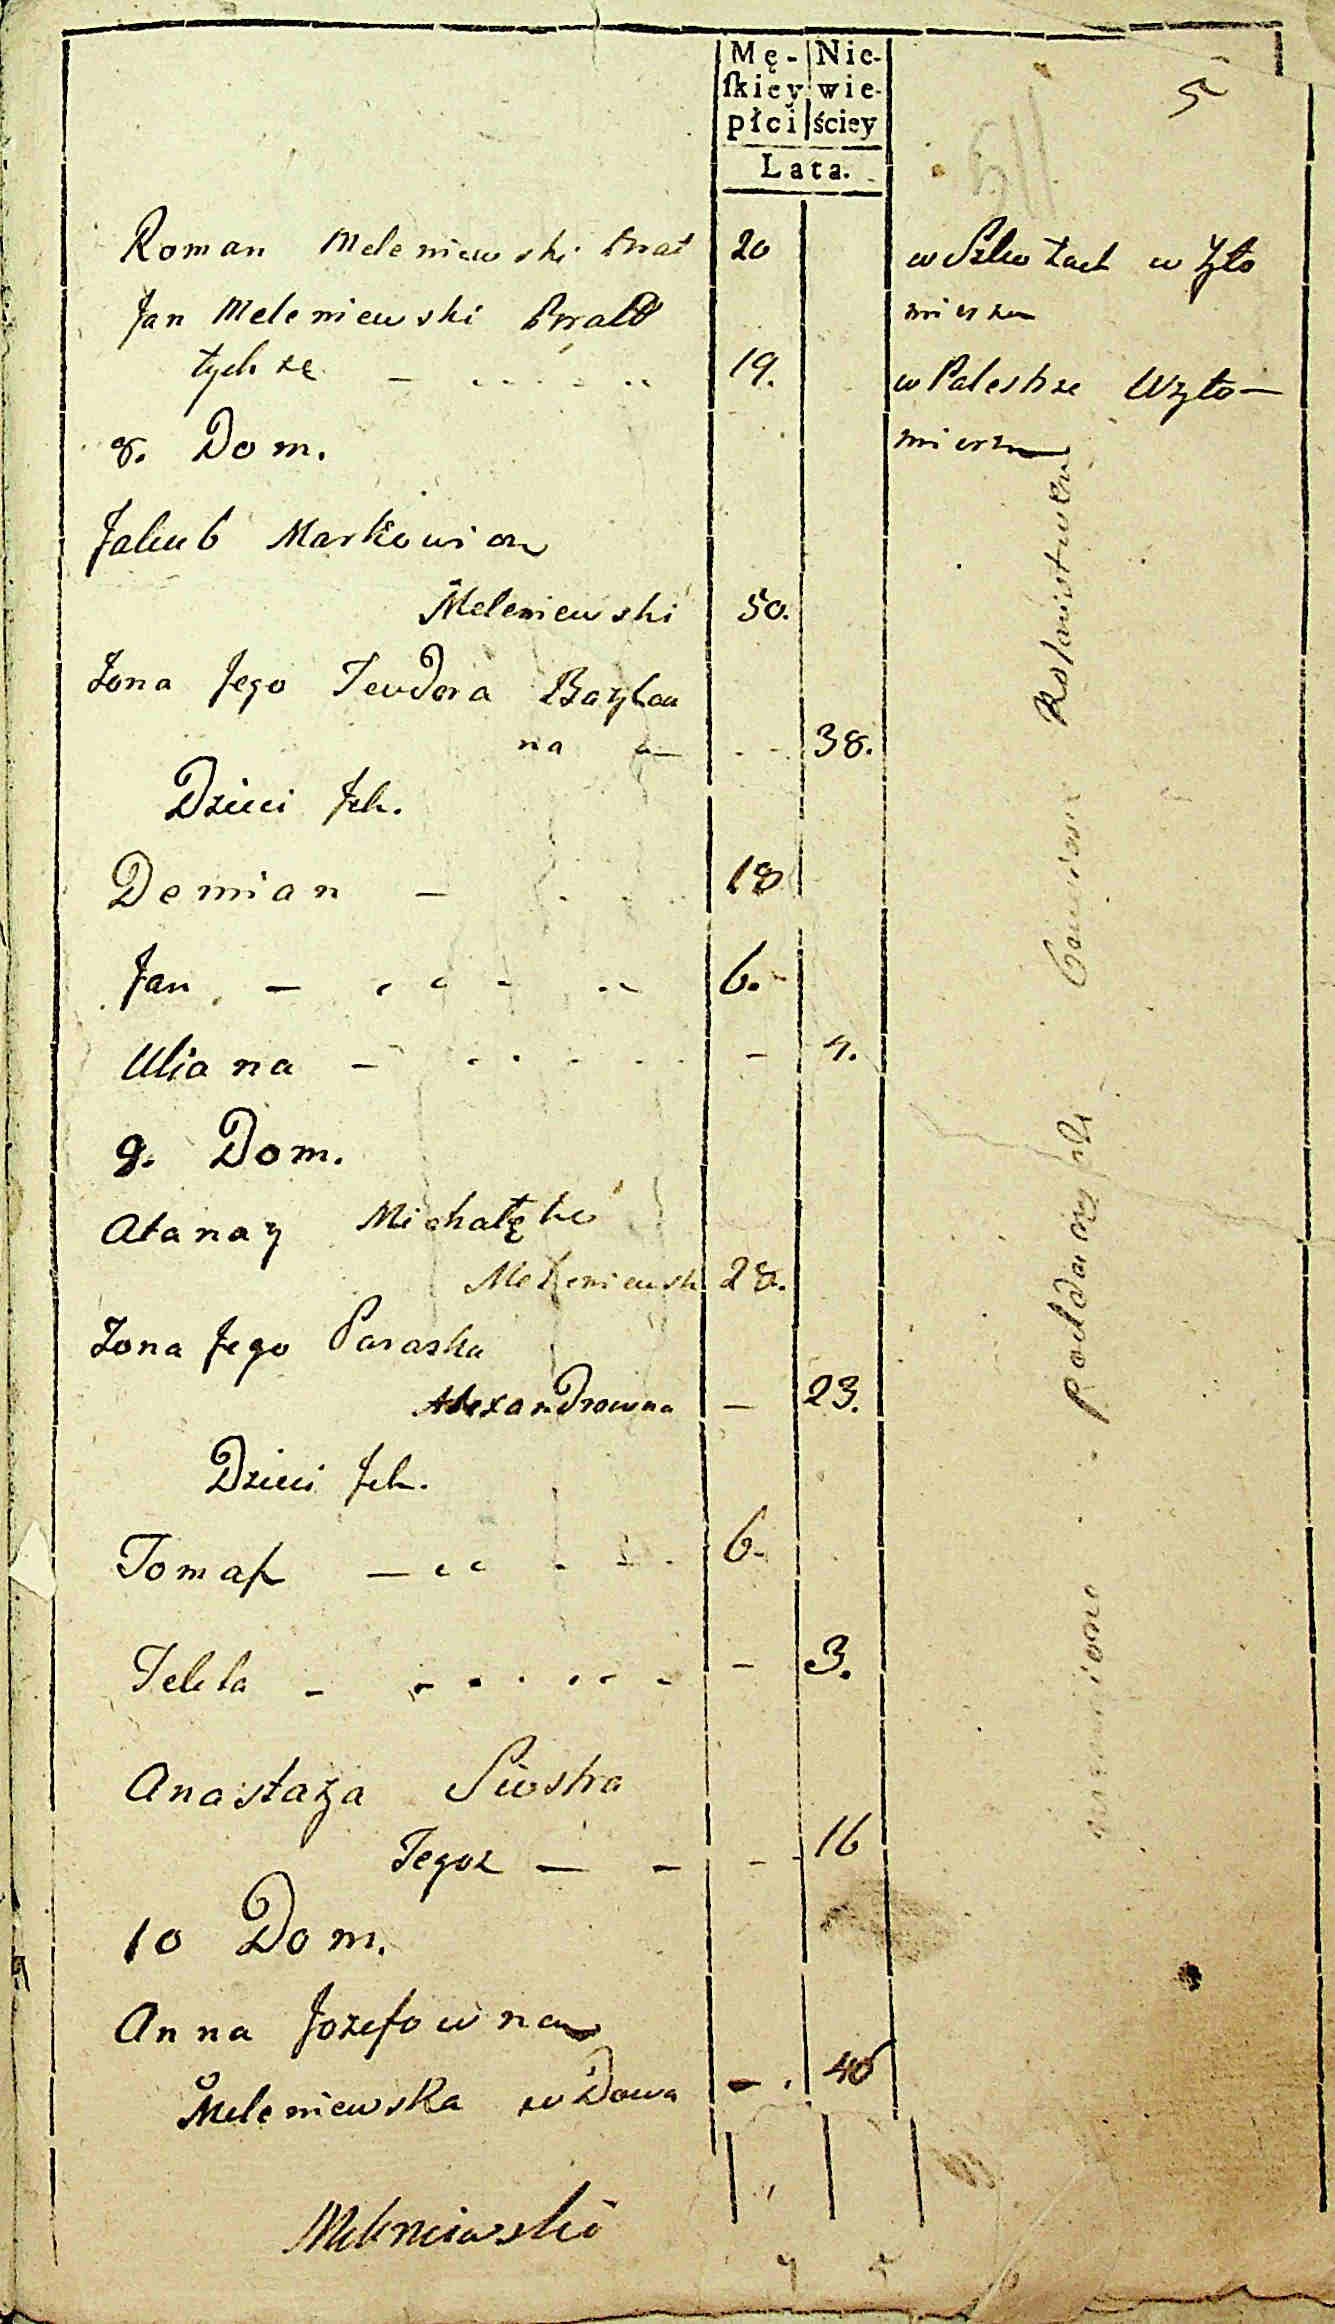 Mę- Nie-
ſkiey wie-
płci ściey
Lata.
5
Roman Meleniewski Brat 20 w Szkołach w Żyto
mierzu
Jan Meleniewski Bratt
tychże 19. w Palestrze W Żyto-
mierzu
8. Dom.
Jakub Markowicz
Meleniewski 50.
Żona Jego Teodora Bazylow
na 38.
Dzieci Jch.
Demian - 18
Jan - 6.
Uliana - - 4.
9. Dom.
Atanazy Michałęko
Meleniewsk 28.
Żona Jego Paraska
Alexandrowna - 23.
Dzieci Jch.
Tomaſz - 6.
Tekla - - 3.
Anastazya Siostra
Tegoz - - - 16
10 Dom.
Anna Jozefowna
Meleniewska wdowa - 40
Meleniewski